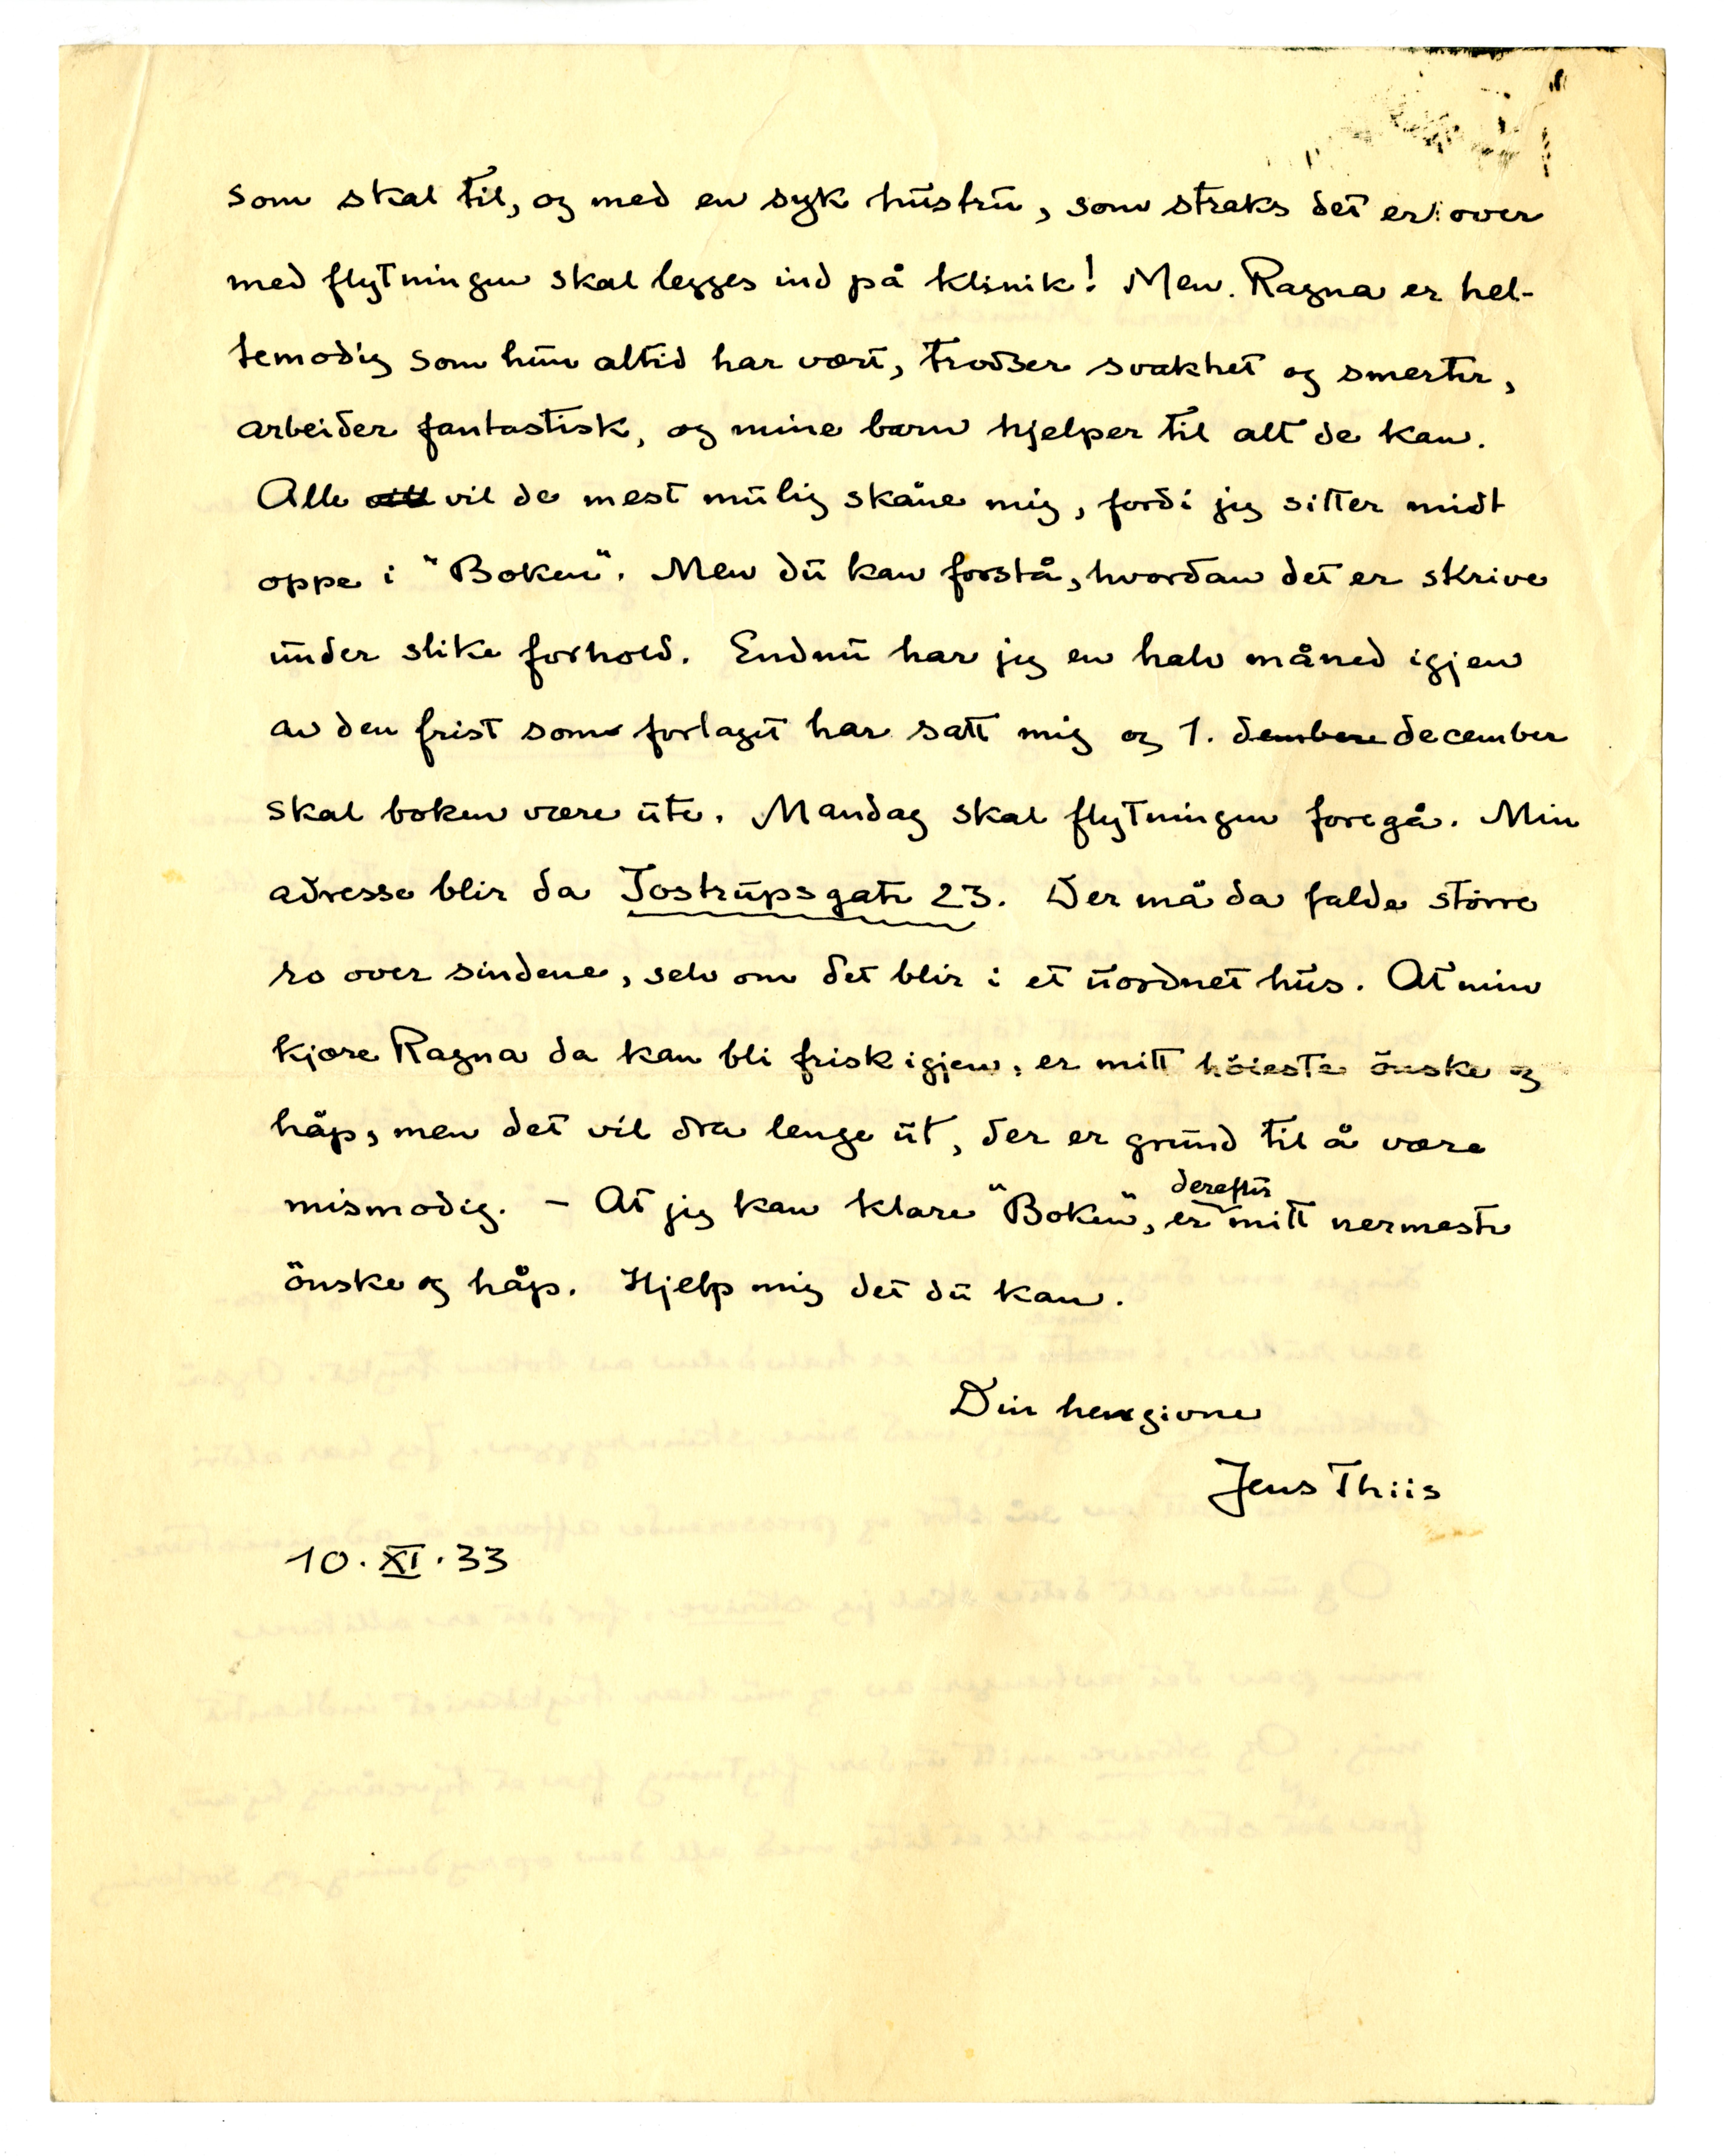 som skal til, og med en syk hustru, som straks det er over
med flytningen skal legges ind på klinik! Men Ragna er hel-
temodig som hun altid har vært, trodser svakhet og smerter,
arbeider fantastisk, og mine barn hjelper til alt de kan.
Alle vil de mest mulig skåne mig, fordi jeg sitter midt
oppe i "Boken". Men du kan forstå, hvordan det er skrive
under slike forhold. Endnu har jeg en halv måned igjen
av den frist som forlaget har satt mig og 1. dembere december
skal boken være ute. Mandag skal flytningen foregå. Min
adresse blir da Tostrupsgate 23. Der må da falde större
ro over sindene, selv om det blir i et uordnet hus. At min
kjære Ragna da kan bli frisk igjen, er mitt höieste önske og
håp, men det vil dra lenge ut, der er grund til å være
mismodig. – At jeg kan klare "Boken", er derefter mitt nermeste
önske og håp. Hjelp mig det du kan.
Din hengivne
Jens Thiis
10. XI. 33